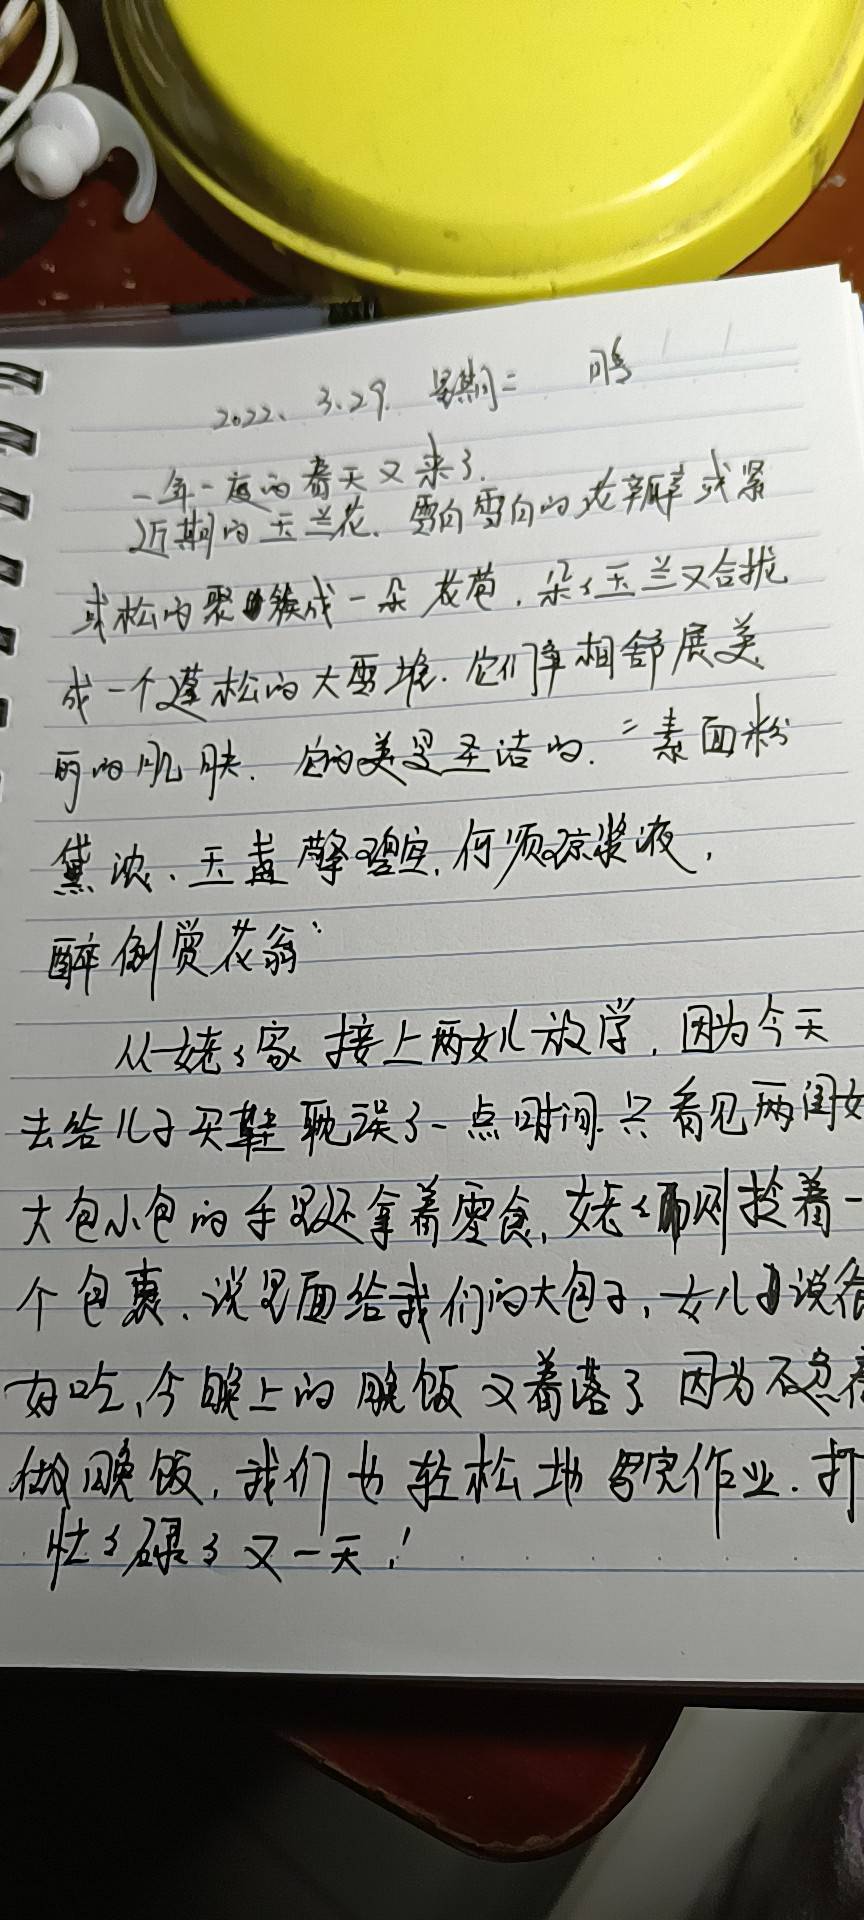 2022.3.29. 星期二 晴
一年一度的春天又来了.
近期的玉兰花.雪白雪白的花瓣或紧
或松的聚簇成一朵花苞.朵々玉兰又合拢
成一个蓬松的大雪堆.它们争相舒展美
丽的肌肤.它的美是圣洁的.“素面粉
黛浓.玉盏擎碧空,何须琼浆液,
醉倒赏花翁”
从姥々家接上两女儿放学,因为今天
去给儿子买鞋耽误了一点时间.只看见两闺女
大包小包的手里还拿着零食,姥々则拎着一
个包裹.说里面给我们的大包子,女儿说
好吃,今晚上的晚饭又着落了因为不急着
做晚饭,我们也轻松地写完作业.
忙々碌々又一天!